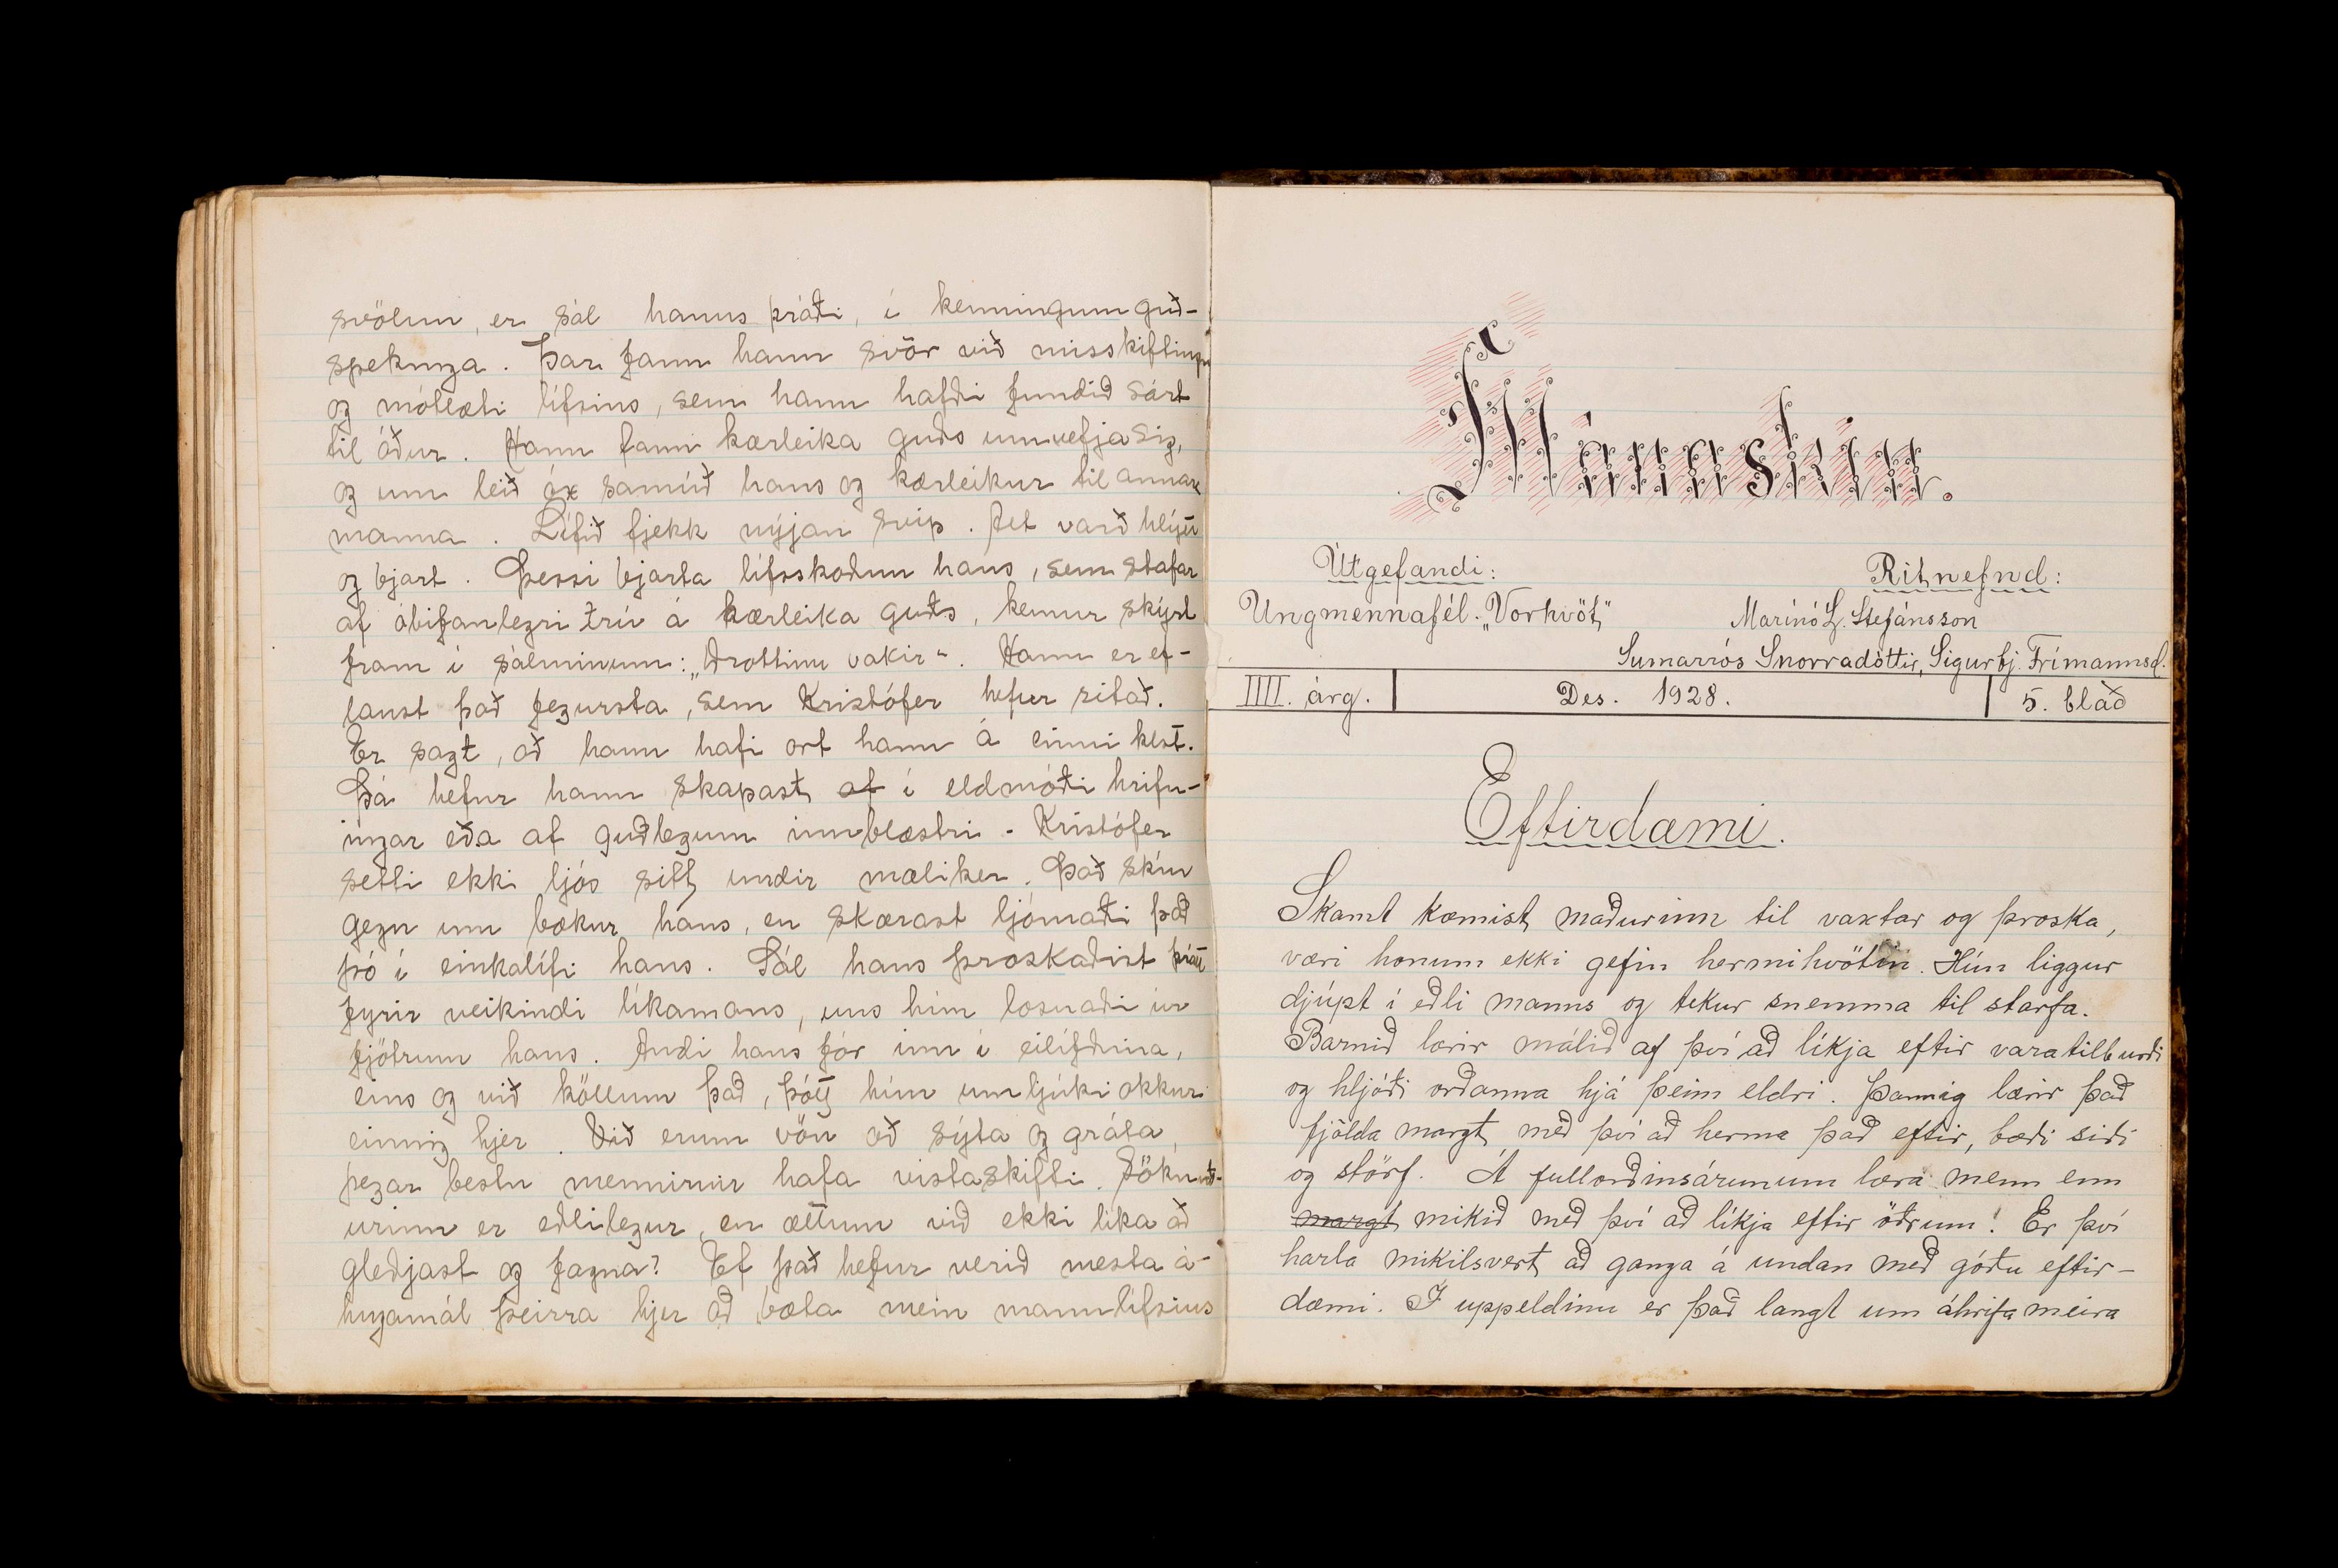 svölun, er sál hans þráði, í kenningum guð-
spekinga. Þar fann hann svör við misskiftingu
og mótlæti lífsins, sem hann hafði fundið sárt
til áður. Hann fann kærleika guðs umvefja sig,
og um leið óx samúð hans og kærleikur til annara
manna. Lífið fjekk nýjan svip. Alt varð hlýtt
og bjart. Þessi bjarta lífsskoðun hans, sem stafar
af óbifanlegri trú á kærleika guðs, kemur skýrt
fram í sálminum: „Drottinn vakir“. Hann er ef-
laust það fegursta, sem Kristófer hefur ritað.
Er sagt, að hann hafi ort hann á einni klst.
Þá hefur hann skapast af í eldmóði hrifn-
ingar eða af guðlegum innblæstri. Kristófer
setti ekki ljós sitt undir mæliker. Það skín
gegn um bækur hans, en skærast ljómaði það
þó í einkalífi hans. Sál hans þroskaðist þrátt
fyrir veikindi líkamans, uns hún losnaði úr
fjötrum hans. Andi hans fór inn í eilífðina,
eins og við köllum það, þótt hún umljúki okkur
einnig hjer. Við erum vön að sýta og gráta,
þegar bestu mennirnir hafa vistaskifti. Söknuð-
urinn er eðlilegur, en ættum við ekki líka að
gleðjast og fagna? Ef það hefur verið mesta á-
hugamál þeirra hjer að bæta mein mannlífsins
Mánaskin.
Útgefandi: Ritnefnd:
Ungmennafél. „Vorhvöt“ Marínó L. Stefánsson
Sumarrós Snorradóttir, Sigurbj. Frímannsd.
IIII. árg. Des. 1928. 5. blað
Eftirdæmi.
Skamt kæmist maðurinn til vaxtar og þroska,
væri honum ekki gefin hermihvötin. Hún liggur
djúpt í eðli manns og tekur snemma til starfa.
Barnið lærir málið af því að líkja eftir varatilburði
og hljóði orðanna hjá þeim eldri. Þannig lærir það
fjölda margt með því að herma það eftir, bæði siði
og störf. Á fullorðinsárunum læra menn enn
margt mikið með því að líkja eftir öðrum! Er því
harla mikilsvert að ganga á undan með góðu eftir-
dæmi. Í uppeldinu er það langt um áhrifameira